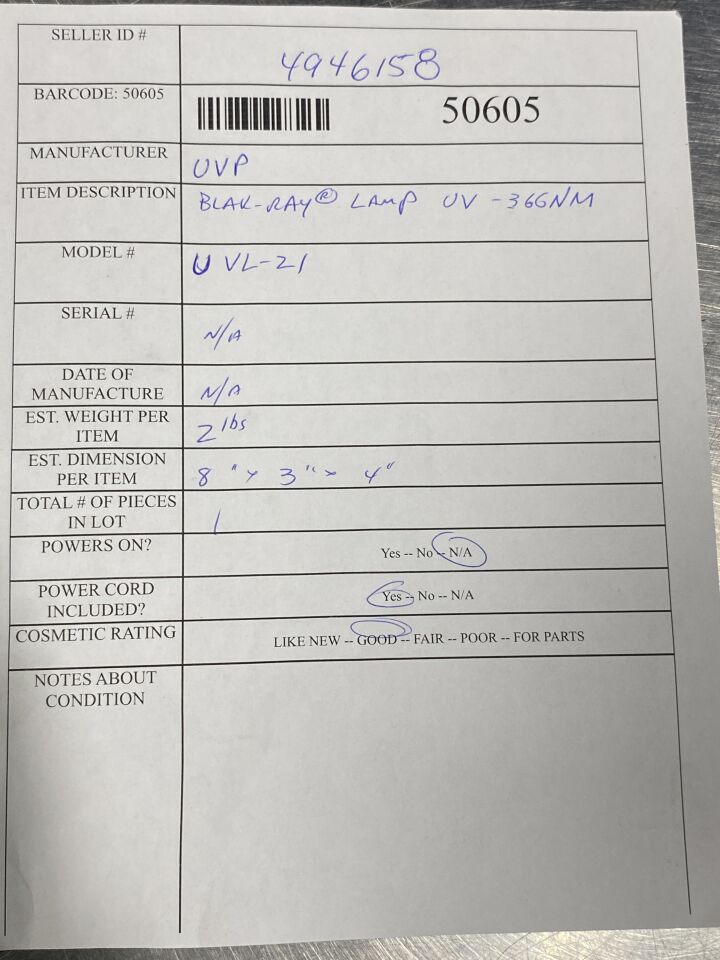 SELLER ID #
4946158
BARCODE: 50605
50605
MANUFACTURER
UVP
ITEM DESCRIPTION
BLAK-RAY® LAMP UV -366NM
MODEL #
UVL-21
SERIAL #
N/A
DATE OF
MANUFACTURE
N/A
EST. WEIGHT PER
ITEM
2 lbs
EST. DIMENSION
PER ITEM
8" x 3" x 4"
TOTAL # OF PIECES
IN LOT
1
POWERS ON?
Yes -- No -- N/A
POWER CORD
INCLUDED?
Yes -- No -- N/A
COSMETIC RATING
LIKE NEW -- GOOD -- FAIR -- POOR -- FOR PARTS
NOTES ABOUT
CONDITION